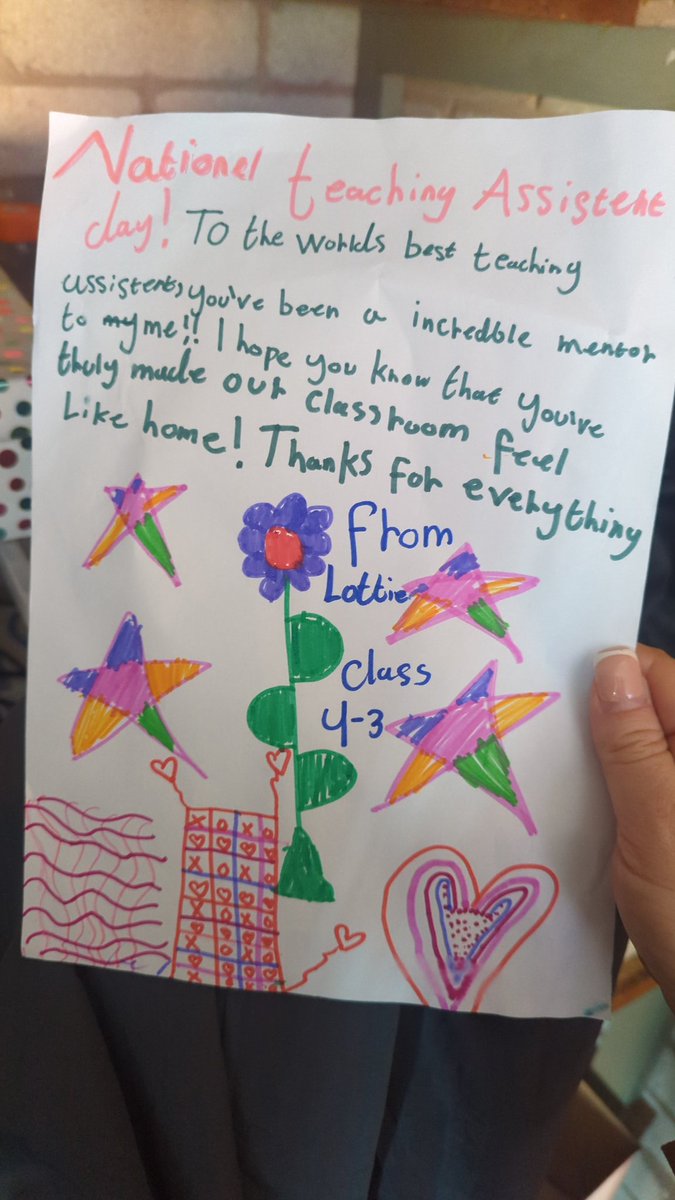 National teaching Assistent
day! To the Worlds best teaching
assistents, you've been a incredble mentor
to my me!! I hope you know that you've
truly made our classroom feel
Like home! Thanks for everything
from
Lottie
Class
4-3